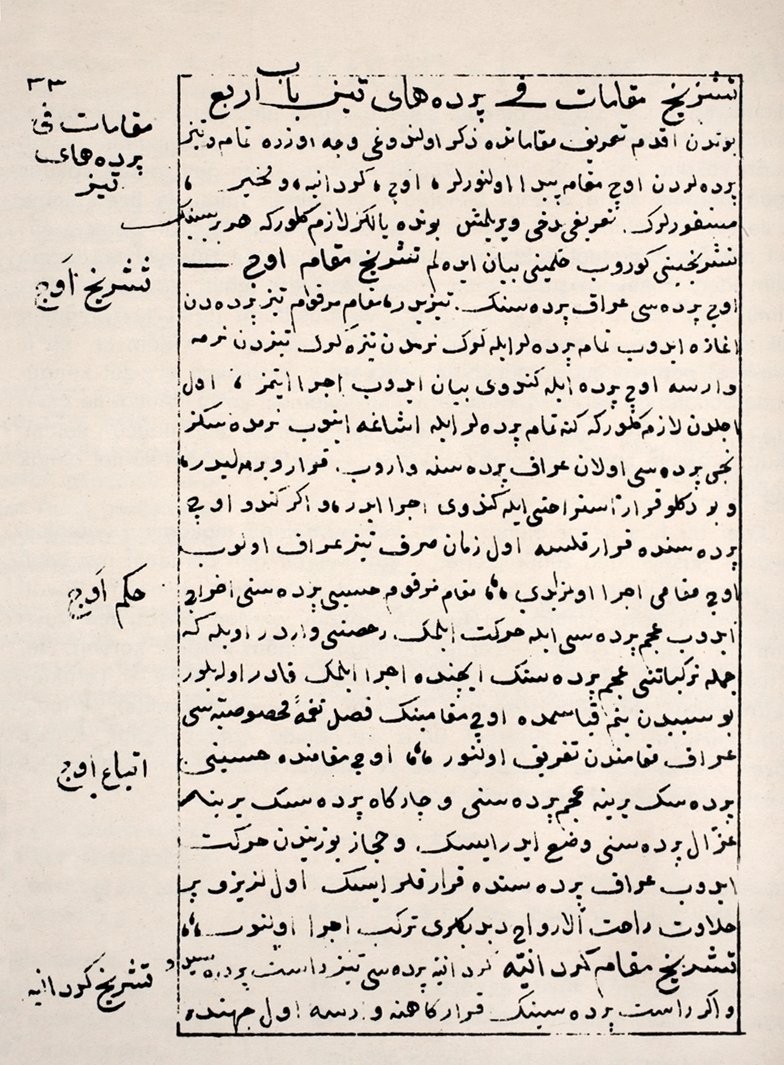 ٣٣
تشریح مقامات فی پرده‌های تیز باب اربع
مقامات فی
پرده‌های
تیز
بوندن اقدم تعریف مقاماتده ذکر اولندوغی وجه اوزره تمام و تیز
پرده‌لردن اوج مقام پیدا اولنورلر، اوج، کردانیه، و محیر،
تعریفی دخی ویرلمش بونده یالکز لازم کلورکه هر بریسینک
تشریحینی کوروب حکمینی بیان ایده‌لم تشریح مقام اوج
تشریح اَوج
اوج پرده‌سی عراق پرده‌سنک تیزیدر، مقام مرقوم تیز پرده‌دن
اغازه ایدوب تمام پرده‌لر ایله کرك نرمدن تیزه کرك تیزدن نرمه
وارسه اوج پرده ایله کندوی بیان ایدوب اجرا ایتمز، اول
اجلدن لازم کلورکه کنه تمام پرده‌لر ایله اشاغه اینوب نرمده سکز
نجی پرده‌سی اولان عراق پرده‌سنه واروب قرار ویرمه‌لیدر،
و بو دکلو قرار استراحتی ایله کندوی اجرا ایدر، و اکر کندو اوج
پرده‌سنده قرار قلسه اول زمان صرف تیز عراق اولوب
اوج مقامی اجرا اولنمزیدی،، مقام مرقوم حسینی پرده‌سنی اخراج
حکم اَوج
ایدوب عجم پرده‌سی ایله حرکت ایلمك رخصتی واردر اویله که
جمله ترکیباتنی عجم پرده‌سنك ایچنده اجرا ایلمك قادر اوله‌بلور
بو سببدن بنم قیاسمده اوج مقامینك فصل نغمهٔ مخصوصیه‌سی
عراق مقامندن تفریق اولنور،، اوج مقامنده حسینی
اتباع اوج
پرده‌سنك یرینه عجم پرده‌سنی و چارکاه پرده‌سنك یرینه
عزّال پرده‌سنی وضع ایدرایسك و حجاز یوزیندن حرکت
ایدوب عراق پرده‌سنده قرار قلرایسك اول لذیذ و پر
حلاوت راحت الارواح دیدیکلری ترکیب اجرا اولنور،،
تشریح مقام کردانیّه کردانیّه پرده‌سی تیز راست پرده‌سیدر
تشریح کردانیه
و اکر راست پرده‌سینك قرارکاهنه وارسه اول جهتده